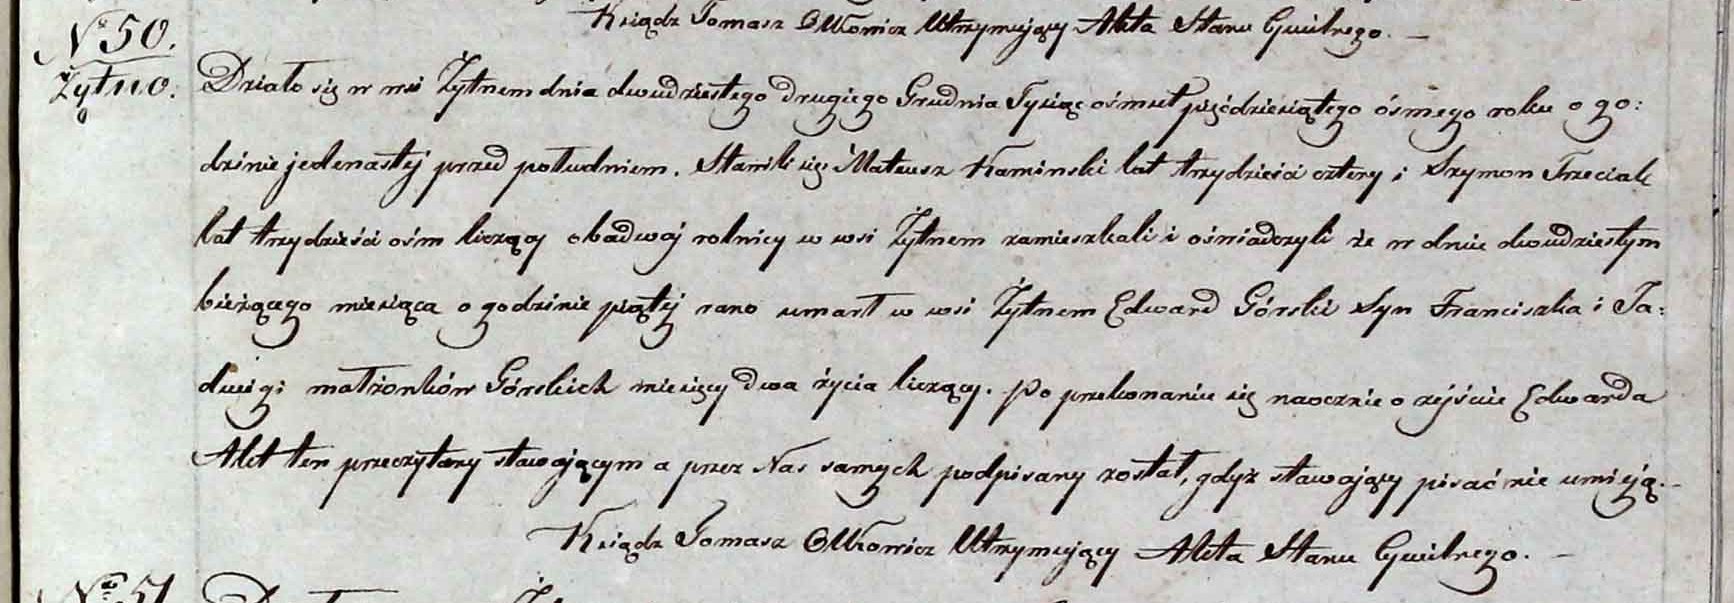 Ksiądz Tomasz Olkowicz Utrzymujący Akta Stanu Cywilnego. –
N° 50.
Żytno.
Działo się w wsi Żytnem dnia dwudziestego drugiego Grudnia Tysiąc ośmset pięćdziesiątego ósmego roku o go:
dzinie jedenastej przed południem. Stawili się Mateusz Kaminski lat trzydzieści cztery i Szymon Trzeciak
lat trzydzieści ośm liczący obadwaj rolnicy w wsi Żytnem zamieszkali i oświadczyli że w dniu dwudziestym
bieżącego miesiąca o godzinie piątej rano umarł w wsi Żytnem Edward Górski Syn Franciszka i Ja:
dwigi małżonków Górskich miesięcy dwa życia liczący. Po przekonaniu się naocznie o zejściu Edwarda
Akt ten przeczytany stawającym a przez Nas samych podpisany został, gdyż stawający pisać nie umieją. –
Ksiądz Tomasz Olkowicz Utrzymujący Akta Stanu Cywilnego. –
N° 51